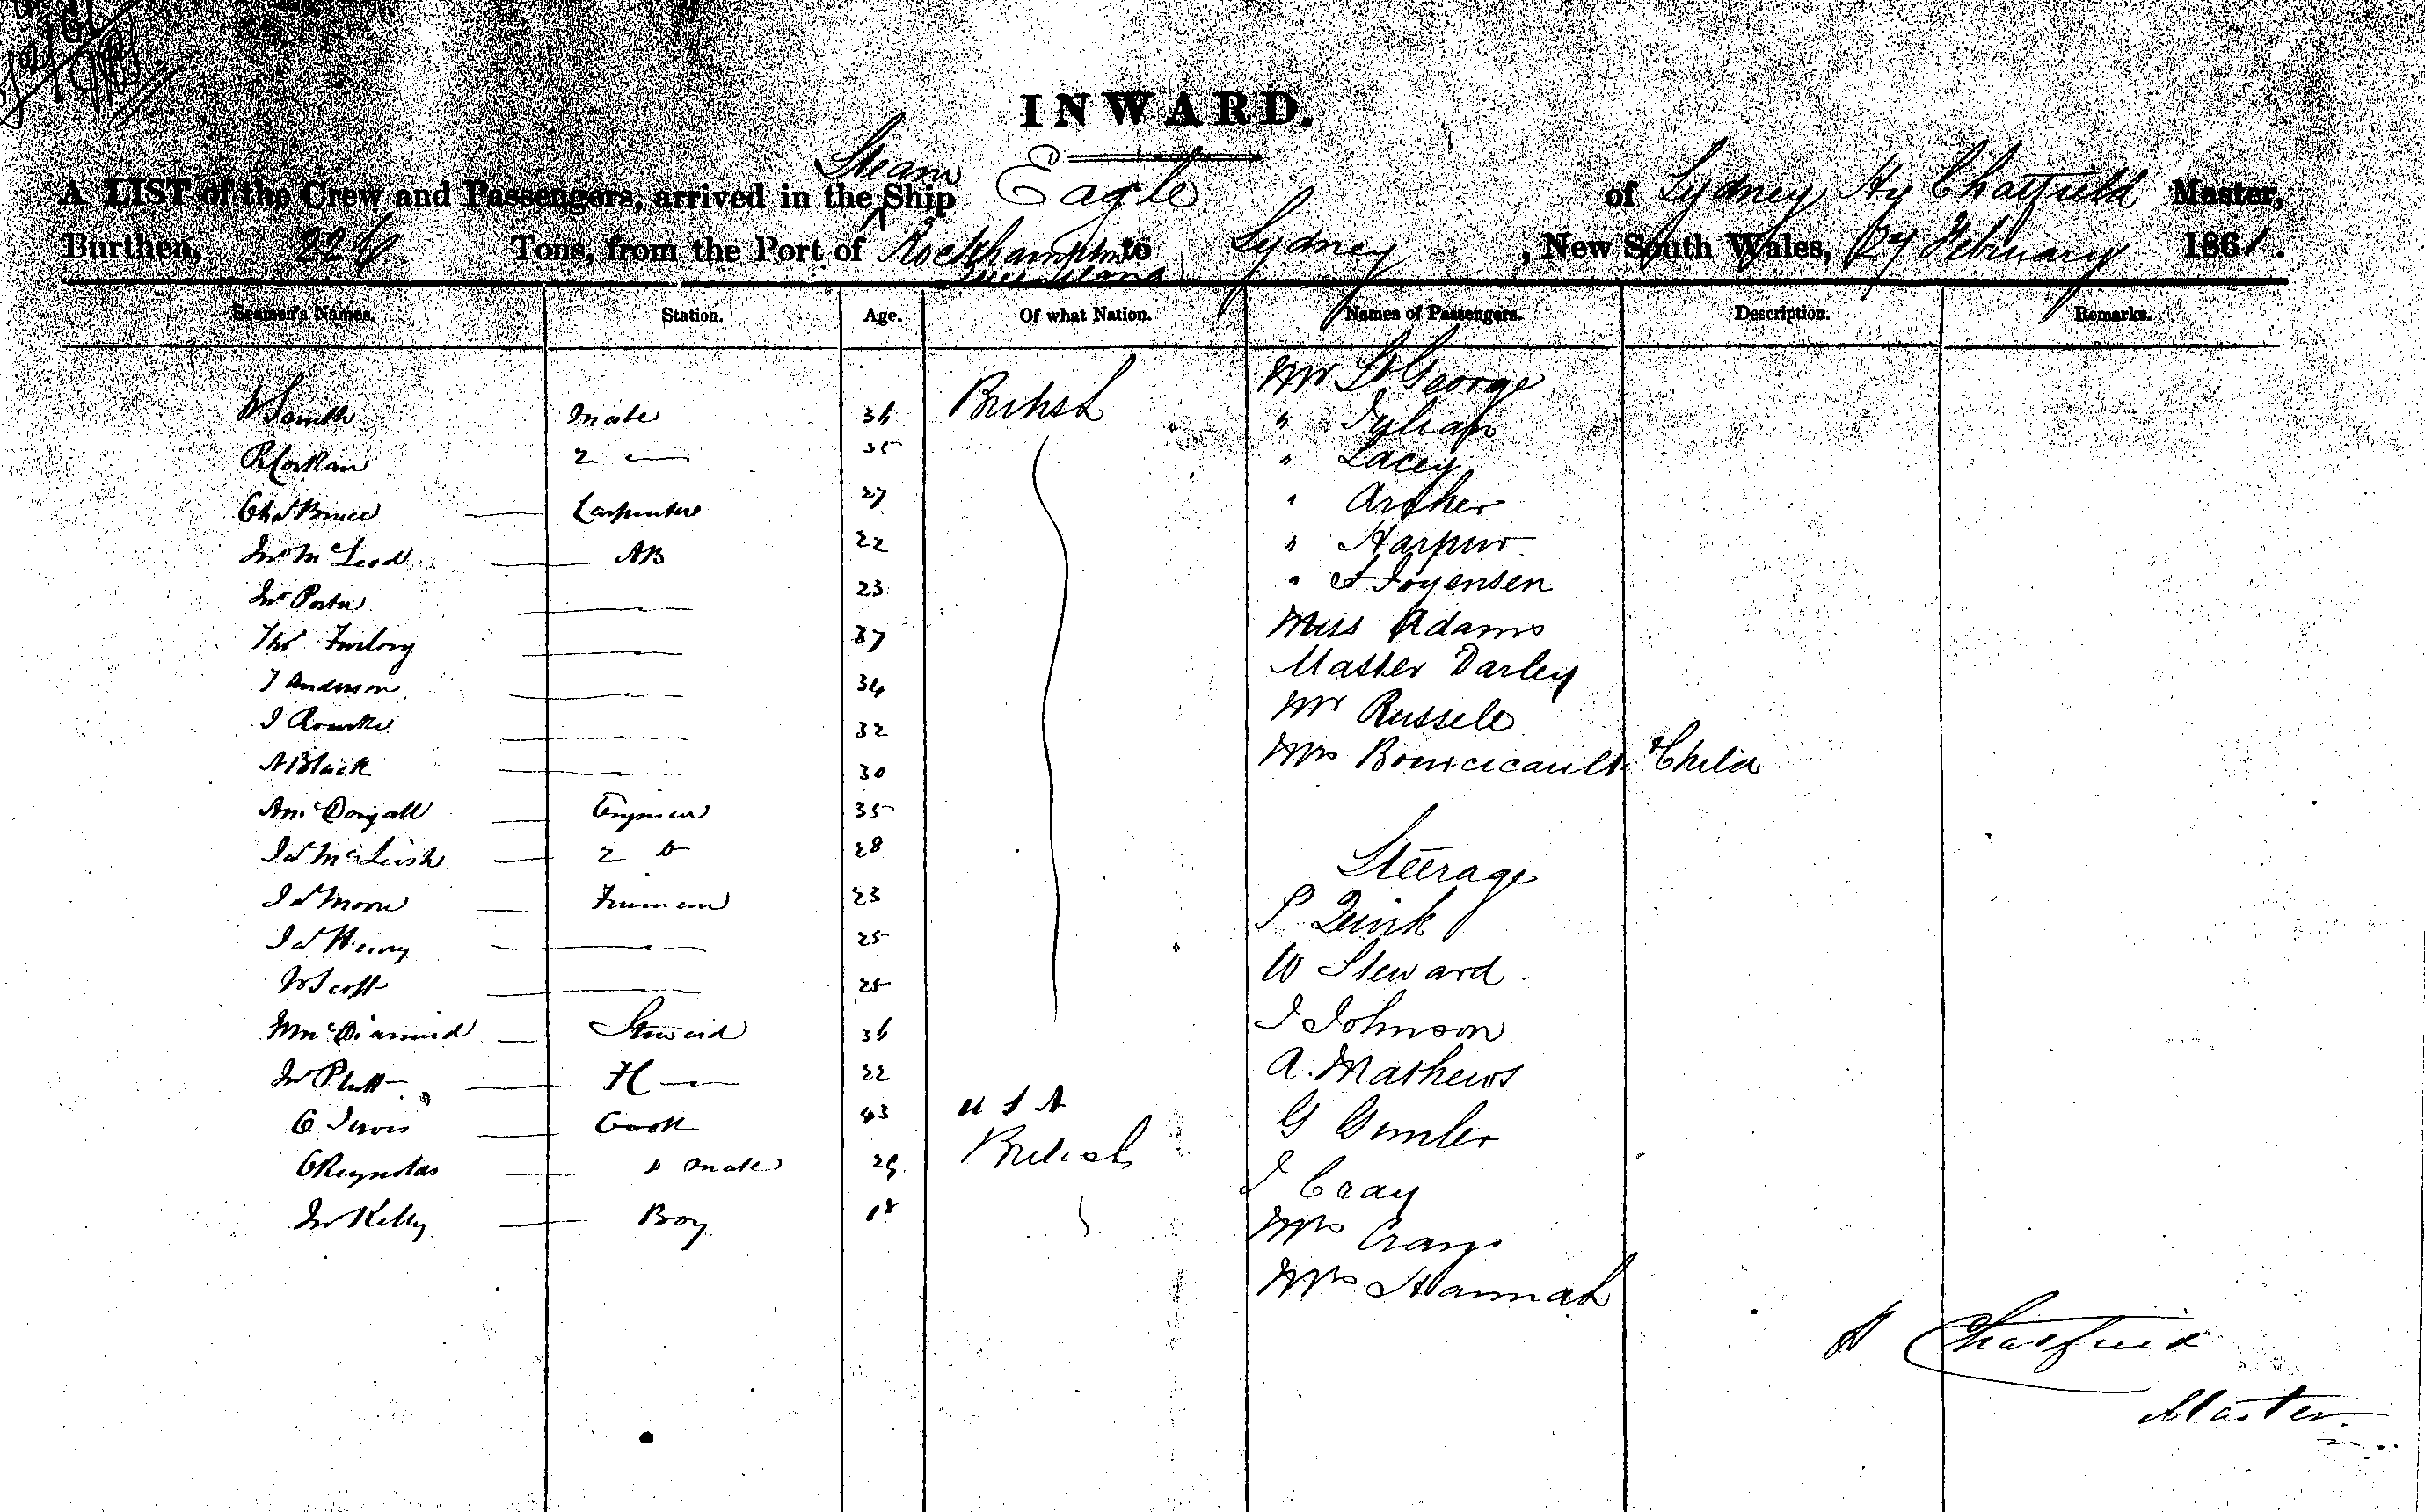 INWARD.
A LIST of the Crew and Passengers, arrived in the Steam Ship Eagle of Sydney Hy Chatfield Master,
Burthen, 226 Tons, from the Port of Rockhampton Queensland to Sydney, New South Wales, 27 February 1861.
Seamen's Names. Station. Age. Of what Nation. Names of Passengers. Description. Remarks.
Mr St George
W Smith Mate 36 British
" Lacey
2 — 35
" Archer
Chas Bruce — Carpenter 27
" Harpur
Jno McLeod — AB 22
" Jorgensen
Jno Porter — 23
Miss Adams
Thos Furlong — 37
Master Darley
J Anderson — 34
Mr Russell
J Rourke — 32
Mrs Bouccicault & Child
A Black — 30
A McDougall — Engineer 35
Jas McLeish — 2 Do 28
Steerage
Jas Moore — Fireman 23
P Quirk
Jas Henry — 25
W Steward
W Scott — 25
J Johnson
W McDiarmid — Steward 36
A. Mathews
Jno Platt — 22
C Jervis — Cook 43 U S A
G Gimler
C Reynolds — Mate 29 British
J Cray
Jno Kelly — Boy 18
Mrs Cray
Mrs Hannah
H Chatfield
Master